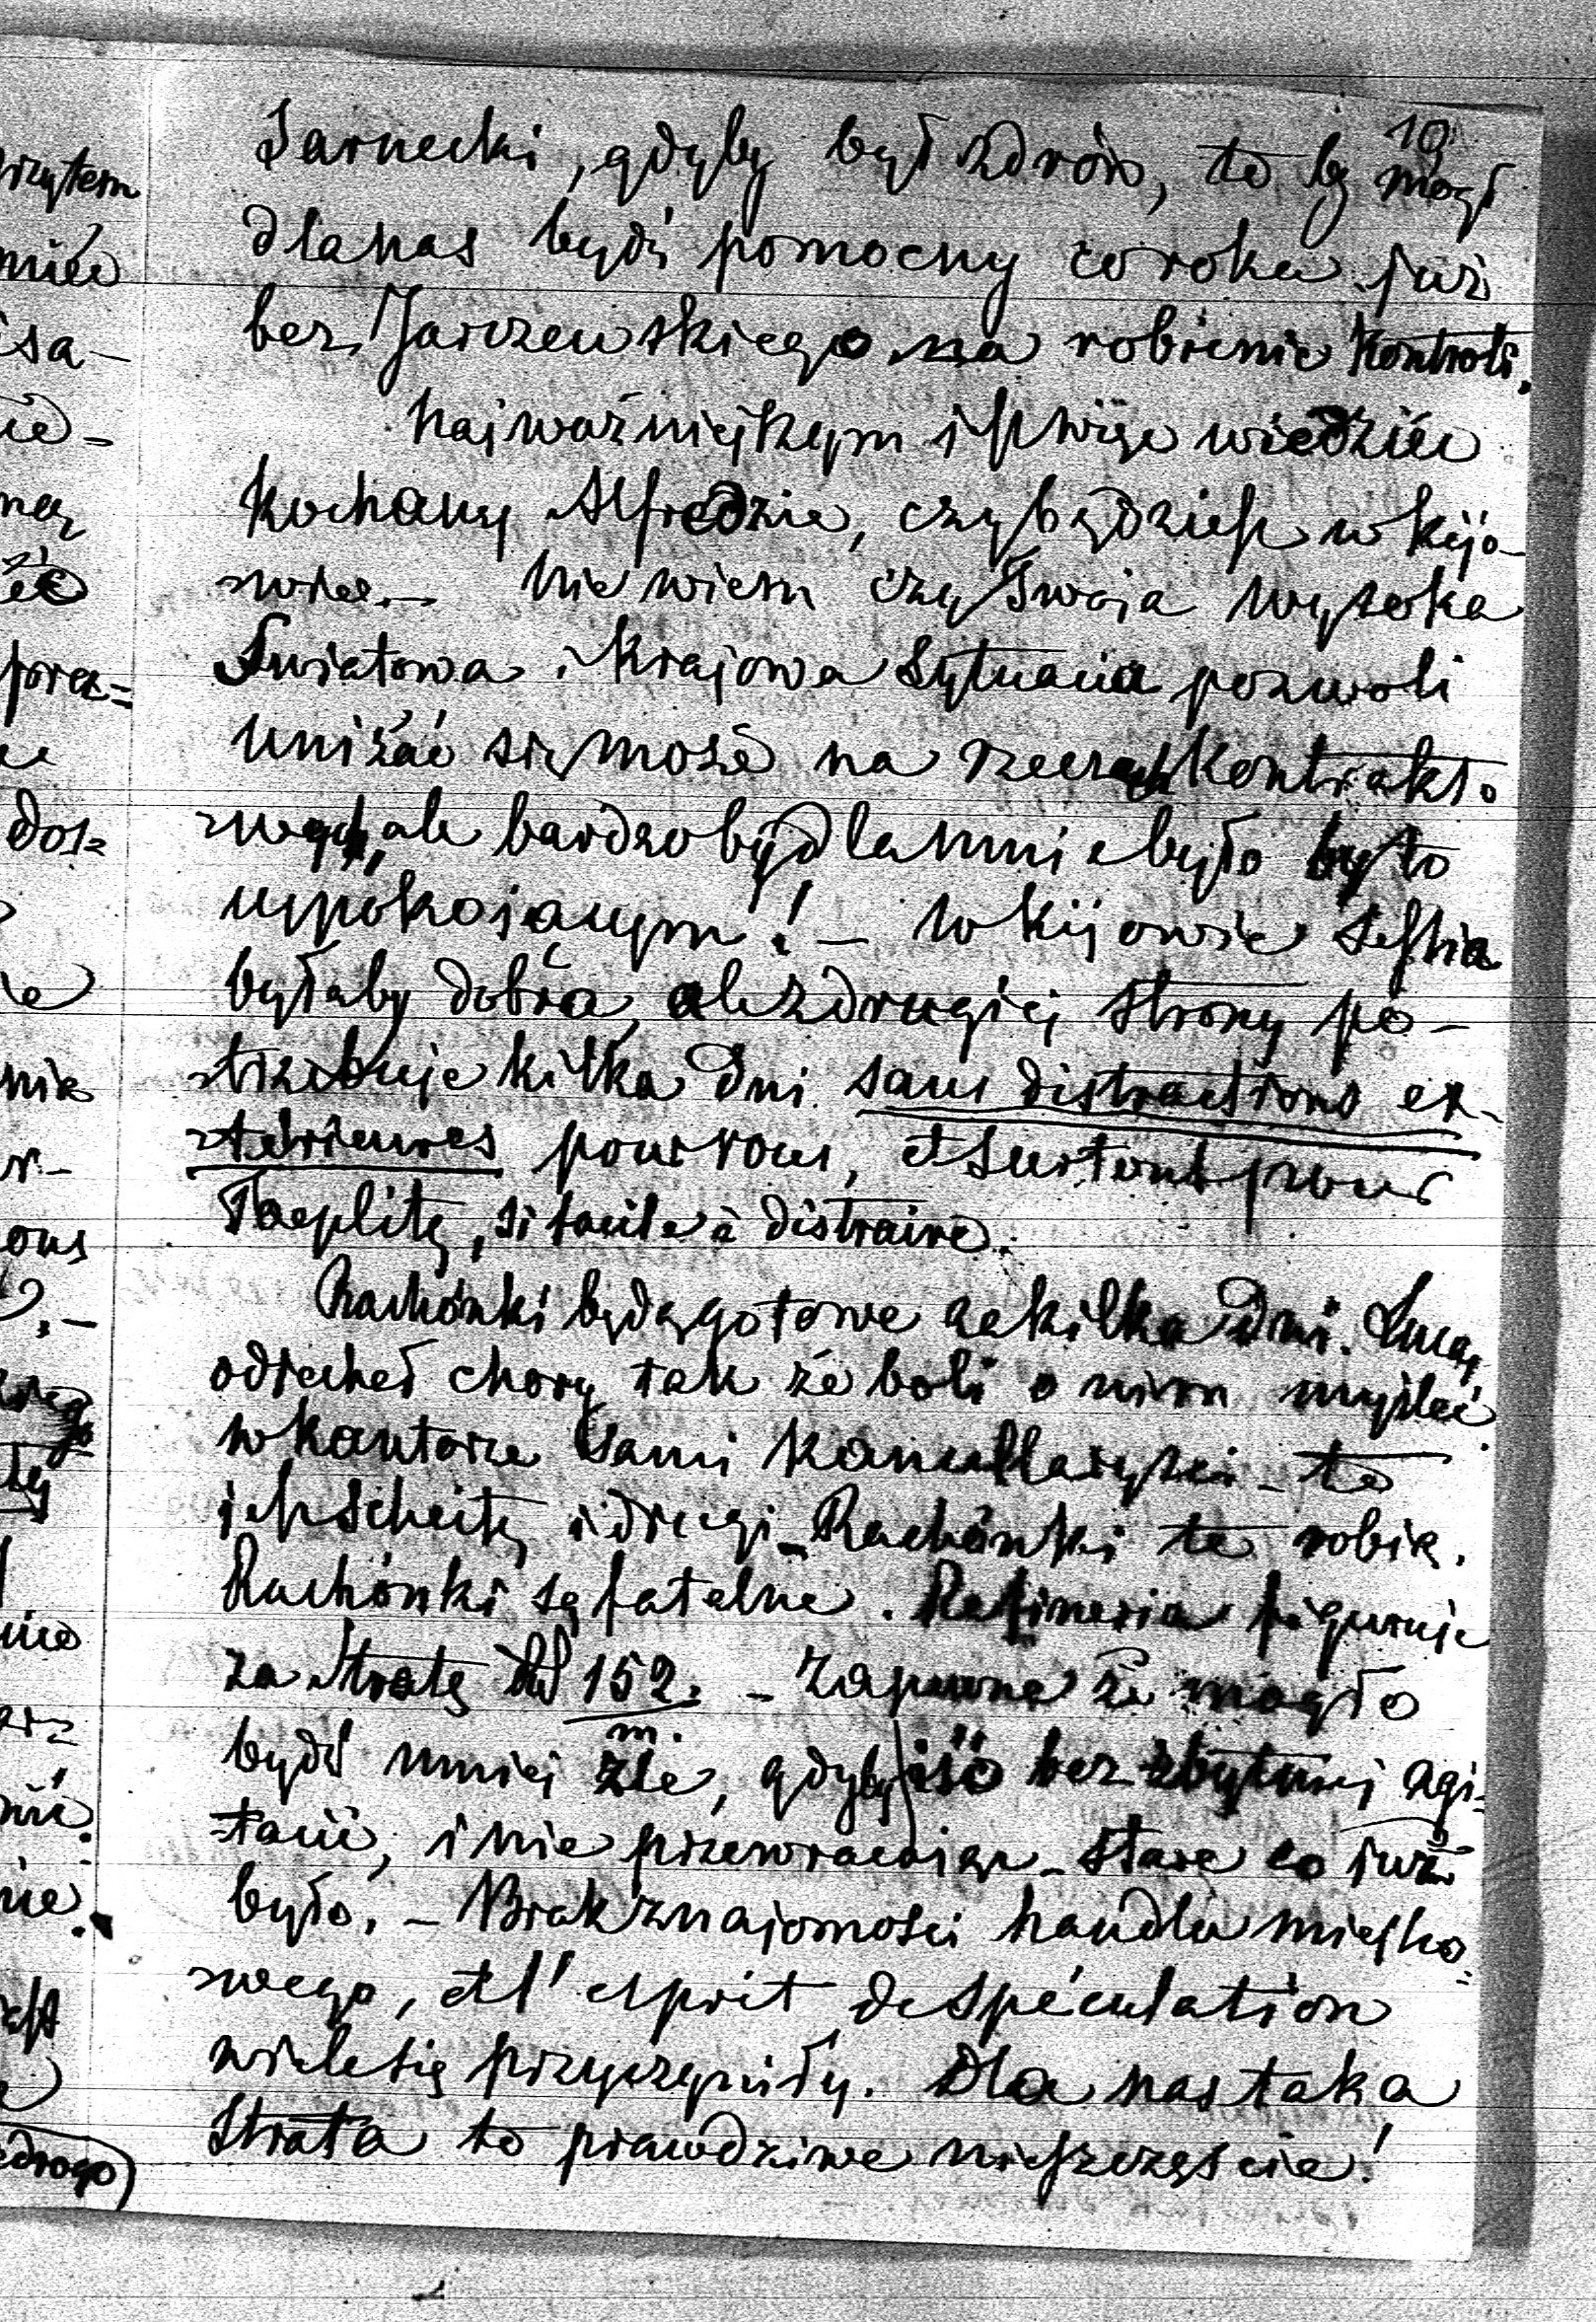 10
Sarnecki, gdyby był zdrów, to by mógł
dla nas bydź pomocny co roku już
bez Jarczewskiego na robienie Kontroli.
Najważniejszym jest więc wiedzieć
Kochany Alfredzie, czy będziesz w Kijo-
wie. — Nie wiem czy Twoja wysoka
Światowa i Krajowa Sytuacia pozwoli
zniżać się może na rzeczy Kontrakto
wych, ale bardzo by dla mnie było by to
uspokojaiącym! — W Kijowie Sessia
byłaby dobra, ale z drugiej strony po-
trzebuje kilka dni sans distractions ex-
terieures pour vous, et surtout pour
Toeplitz, si facile à distraire.
Rachónki będą gotowe za kilka dni.
odjechał chory tak że boli o nim myśleć.
w kantorze sami Kancellaryści — to
jest Scheitz i drugi — Rachónki te robią.
Rachónki są fatalne. Rafineria figuruje
za Stratę 152. — Zapewne że mogło
m.
bydź mniej źle, gdyby iść bez zbytniej agi-
tacii, i nie przewracaiąc — stare co już
było. — Brak znajomości handlu miejsco-
wego, et l'esprit de spéculation
wiele się przyczyniły. Dla nas taka
Strata to prawdziwe nieszczęście!